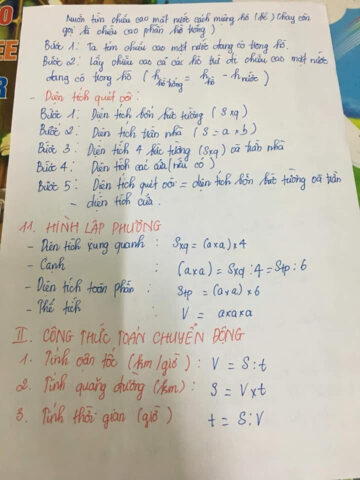 Muốn tìm chiều cao mặt nước cách miệng hồ (bể) (hay còn
gọi là chiều cao phần hồ trống)
Bước 1: Ta tìm chiều cao mặt nước đang có trong hồ.
Bước 2: Lấy chiều cao cả cái hồ trừ đi chiều cao mặt nước
đang có trong hồ (h hồ trống = h hồ - h nước)
- Diện tích quét vôi:
Bước 1: Diện tích bốn bức tường (Sxq)
Bước 2: Diện tích trần nhà (S = a x b)
Bước 3: Diện tích 4 bức tường (Sxq) và trần nhà
Bước 4: Diện tích các cửa (nếu có)
Bước 5: Diện tích quét vôi = diện tích bốn bức tường và trần
- diện tích cửa.
11. HÌNH LẬP PHƯƠNG
- Diện tích xung quanh: Sxq = (axa) x 4
- Cạnh : (axa) = Sxq : 4 = Stp : 6
- Diện tích toàn phần: Stp = (axa) x 6
- Thể tích : V = axaxa
II. CÔNG THỨC TOÁN CHUYỂN ĐỘNG
1. Tính vận tốc (km/giờ): V = S : t
2. Tính quãng đường (km): S = V x t
3. Tính thời gian (giờ) t = S : V